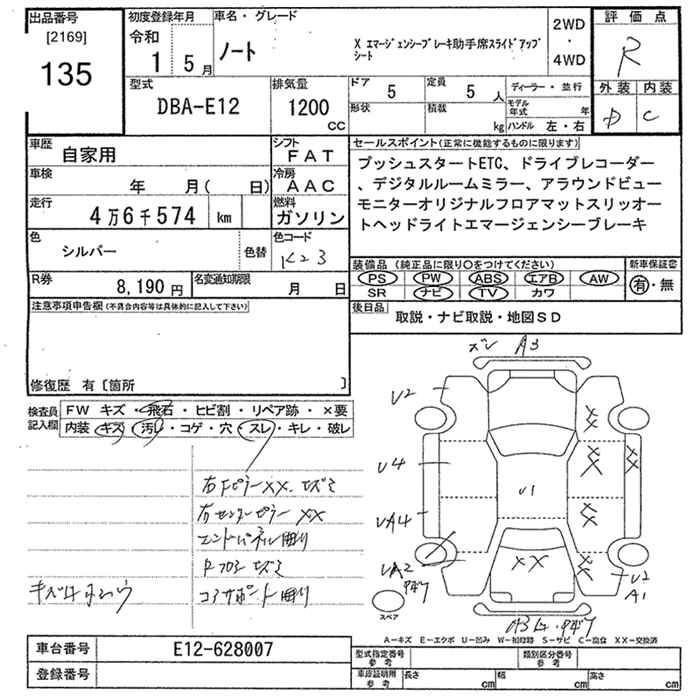 出品番号
[2169]
135
初度登録年月
令和
1 5月
車名・グレード
ノート
X エマージェンシーブレーキ助手席スライドアップシート
2WD
・
4WD
評価点
R
外装 内装
D C
型式
DBA-E12
排気量
1200
CC
ドア
5
定員
5
人
形状
積載
kg
ディーラー・並行
モデル年式
年
ハンドル 左・右
車歴
自家用
シフト
FAT
車検
年 月( 日)
冷房
AAC
走行
4万6千574
km
燃料
ガソリン
色
シルバー
色替
色コード
K23
R券
8,190円
名変通知期限
月 日
セールスポイント(正常に機能するものに限ります)
プッシュスタートETC、ドライブレコーダー
、デジタルルームミラー、アラウンドビュー
モニターオリジナルフロアマットスリッオー
トヘッドライトエマージェンシーブレーキ
装備品 (純正品に限り○をつけてください)
PS PW ABS エアB AW
SR ナビ TV カワ
新車保証書
有・無
後日品
取説・ナビ取説・地図SD
注意事項申告欄(不具合内容等は具体的に記入して下さい)
修復歴 有〔箇所 〕
検査員記入欄
FW キズ・飛石・ヒビ割・リペア跡・×要
内装 キズ・汚れ・コゲ・穴・スレ・キレ・破レ
右Fピラー××.ヒズミ
右センターピラー ××
エンドパネル曲り
Rフロア ヒズミ
コアサポート曲り
ズレ A3
U2
U4
UA4
UA2
U1
××
××
××
××
××
××
U2
A1
スペア
A-キズ E-エクボ U-凹み W-補修跡 S-サビ C-腐食 XX-交換済
車台番号
E12-628007
登録番号
型式指定番号
参考
類別区分番号
参考
車庫証明用
参考
長さ
cm
幅
cm
高さ
cm